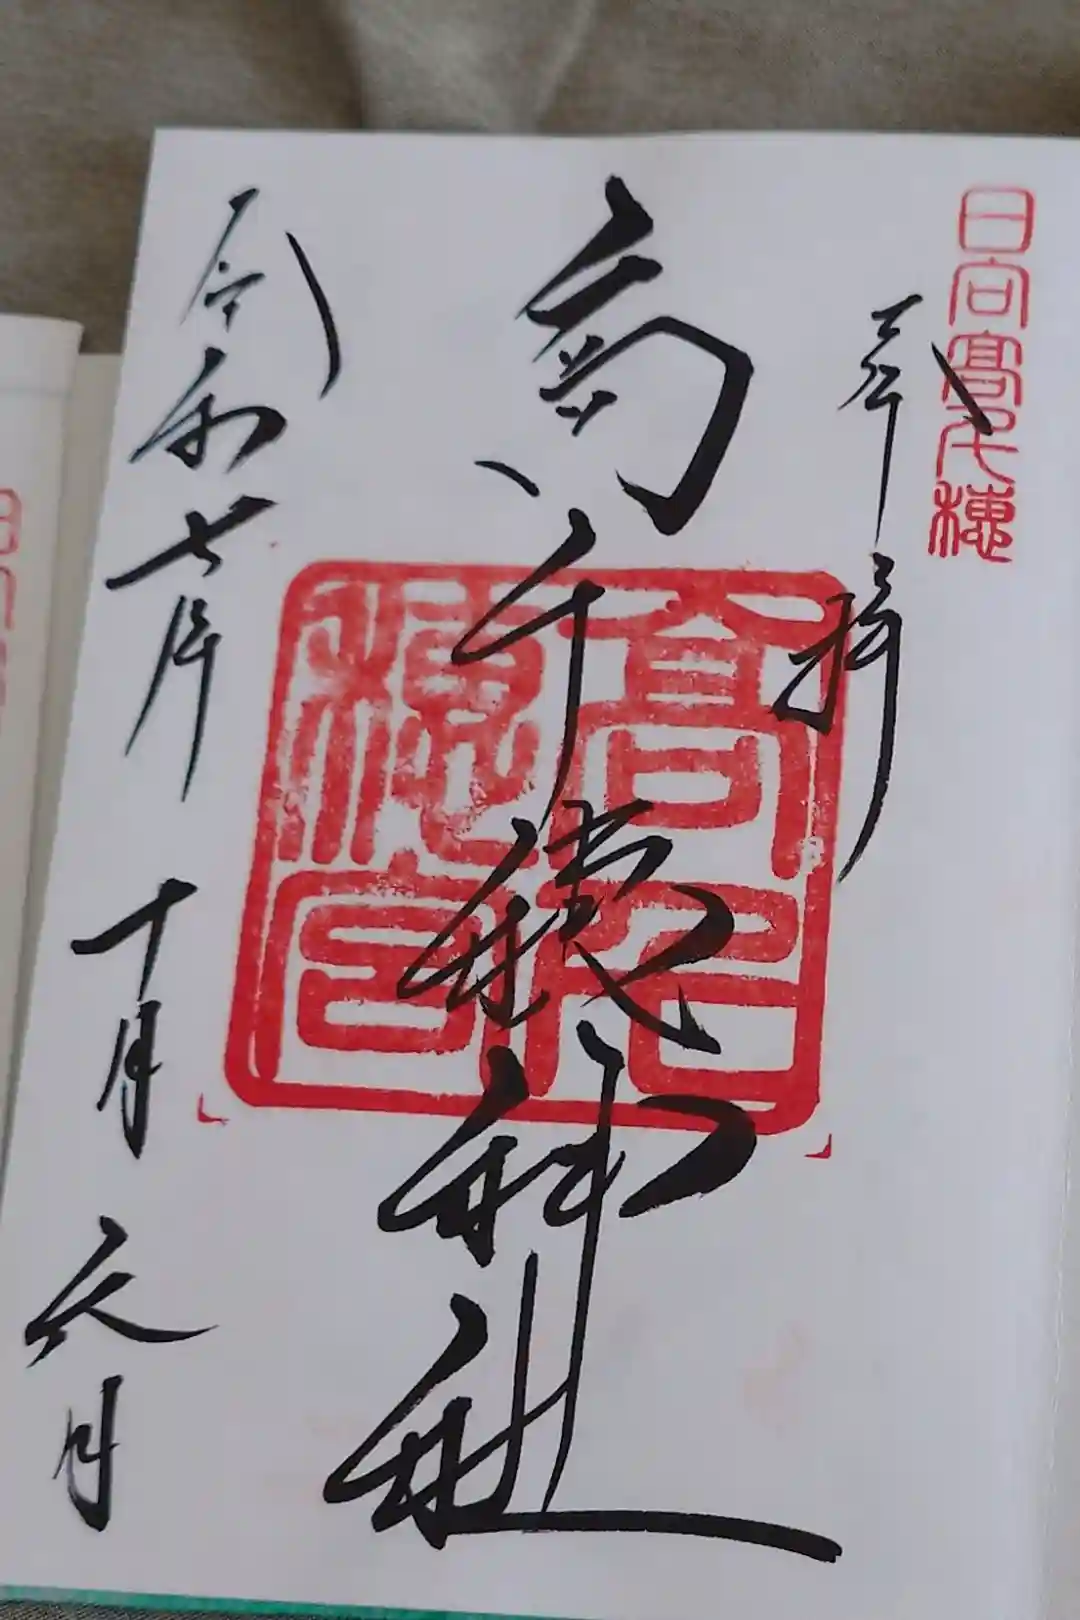 日向髙千穂
奉拝
高千穂神社
髙千
穂宮
令和七年十月六日